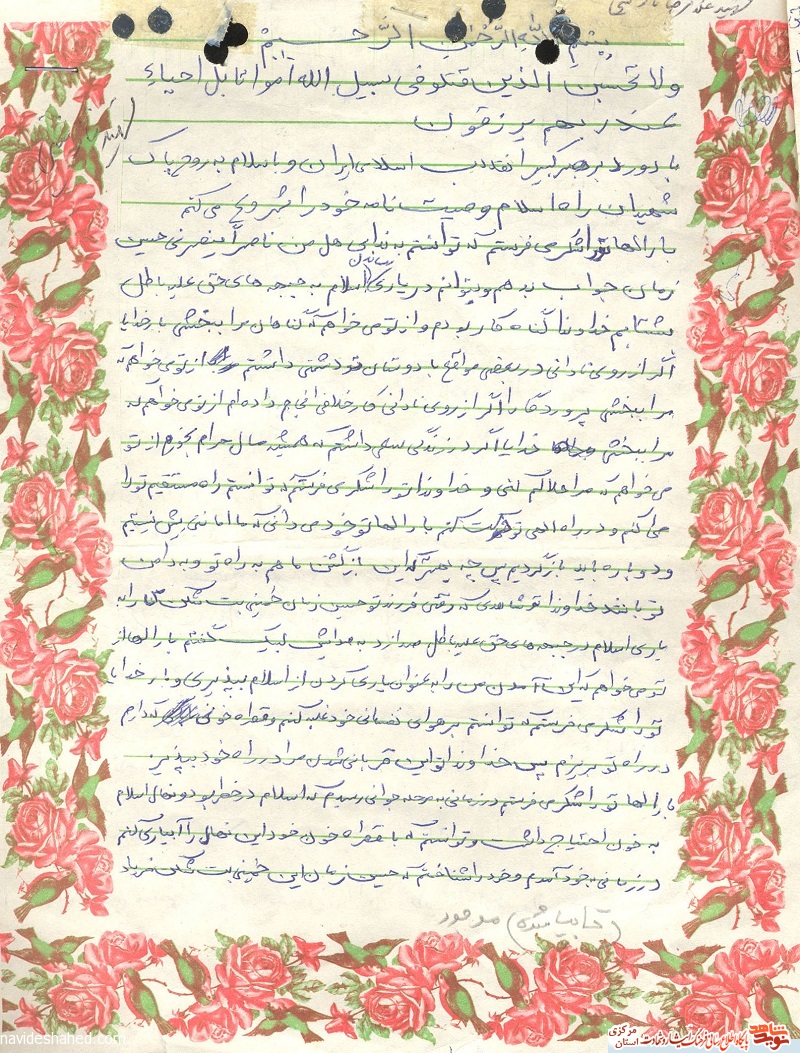 شهید علیرضا
بسم الله الرحمن الرحیم
ولا تحسبن الذین قتلو فی سبیل الله امواتا بل احیاء
عند ربهم یرزقون
با درود بر رهبر کبیر انقلاب اسلامی ایران و با سلام به روح پاک
شهیدان راه اسلام وصیت نامه خود را شروع می کنم
بارالها تو را شکر می فرستم که توانستم به ندای هل من ناصراً ینصرنی حسین
زمان جواب بدهم و بتوانم در یاری اسلام به جبهه های حق علیه باطل
بشتابم خداوندا گناه کار بودم و از تو می خواهم که گناهان مرا ببخشی بار خدایا
اگر از روی نادانی در بعضی مواقع با دوستان خود شتی داشتم از تو می خواهم که
مرا ببخشی پروردگارا اگر از روی نادانی کار خلافی انجام داده ام از تو می خواهم که
مرا ببخشی خدایا اگر در زندگی سعی داشتم که همیشه مال حرام نخورم از تو
می خواهم که مرا حلالم کنی و خداوندا تو را شکر می فرستم که توانستم راه مستقیم تو را
طی کنم و در راه الهی تو حرکت کنم بارالها تو خود می دانی که ما امانتی بیش نیستیم
و دوباره باید بازگردیم پس چه بهتر که این بازگشتن ما هم به راه تو و به دامن
تو باشد خداوندا تو شاهدی که وقتی فرزند تو حسین زمان خمینی بت شکن ما را به
یاری اسلام در جبهه های حق علیه باطل صدا زد به صدایش لبیک گفتم بارالها از
تو می خواهم که این آمدن من را به عنوان یاری کردن از اسلام بپذیری و بار خدایا
تو را شکر می فرستم که توانستم بر هوای نفسانی خود غلبه کنم و قطره خونی که دارم
در راه تو بریزم پس خداوندا تو این قربانی شدن مرا در راه خود بپذیر
بارالها تو را شکر می فرستم در زمانی به مرحله جوانی رسیدم که اسلام در خطر بود و نهال اسلام
به خون احتیاج داشت و توانستم که با قطره خون خود این نهال را آبیاری کنم
در زمانی به خود آمدم و خود را شناختم که حسین زمان این خمینی بت شکن فریاد
موجود
navideshahed.com
نوید شاهد
پایگاه اطلاع رسانی فرهنگ ایثار و شهادت
استان مرکزی